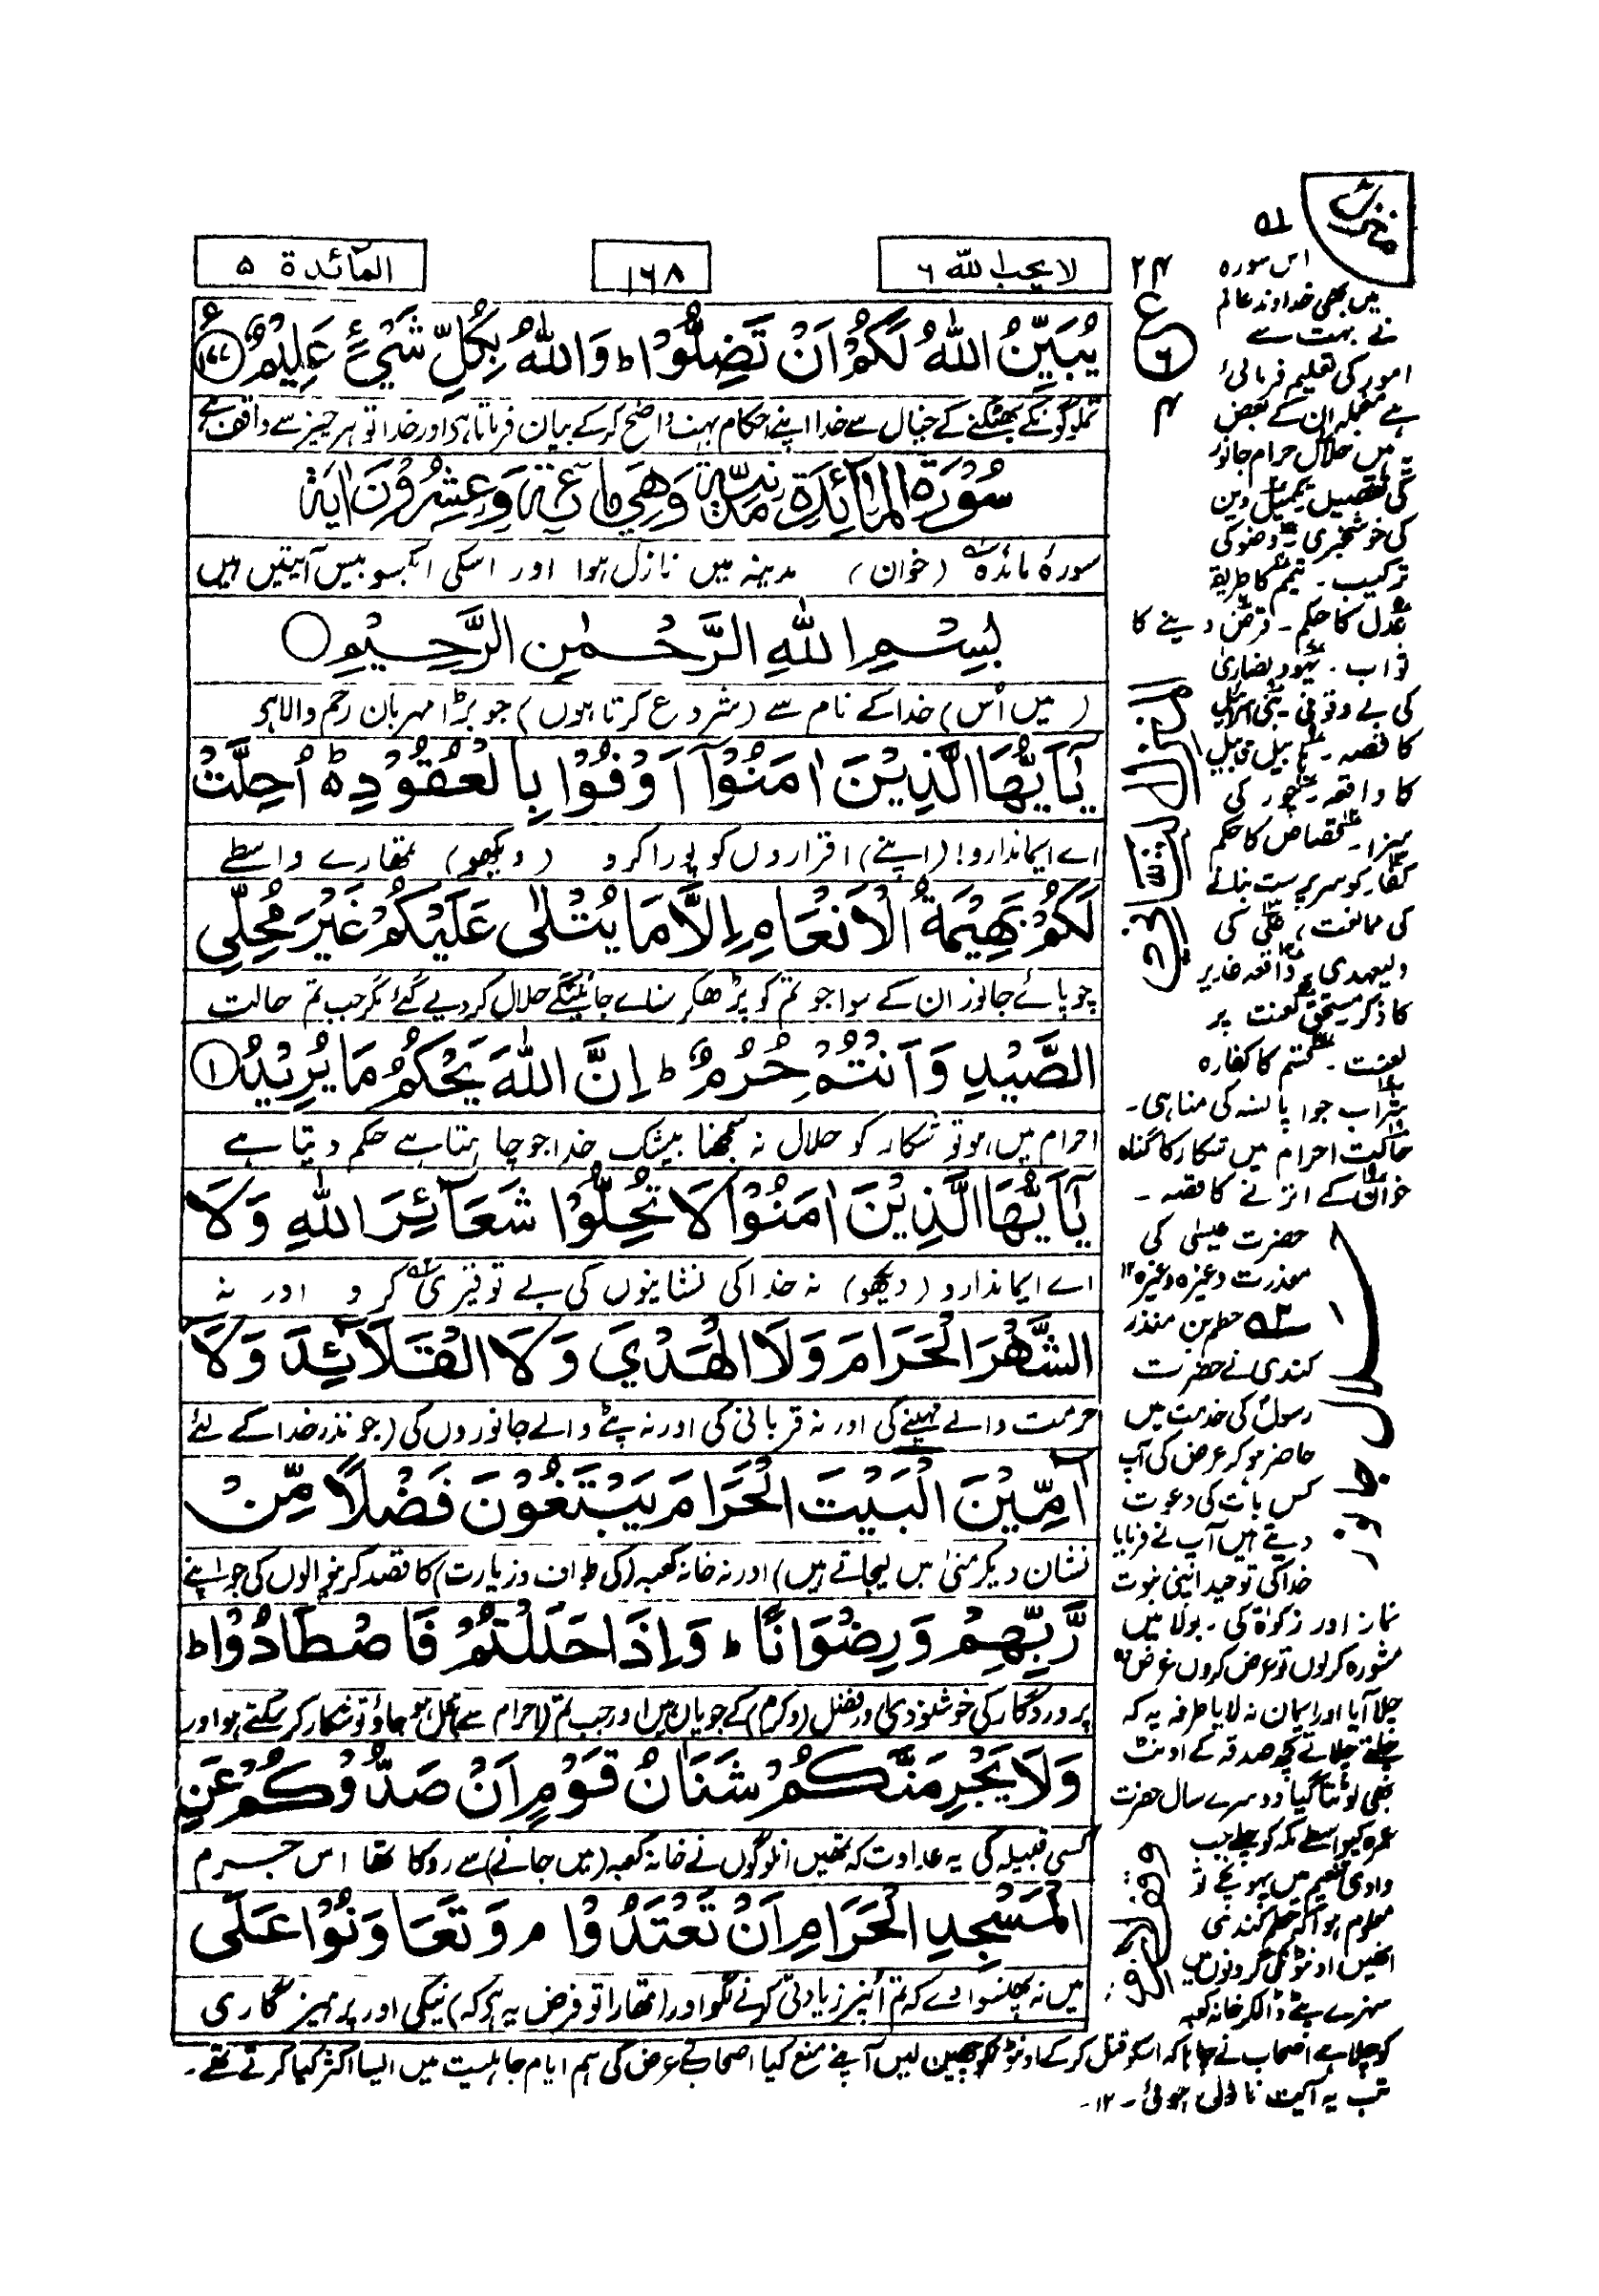 لا یحب الله ۶
۱۶۸
المآئدة ۵
یُبَیِّنُ اللّٰهُ لَکُمْ اَنْ تَضِلُّوْا ؕ وَاللّٰهُ بِکُلِّ شَیْءٍ عَلِیْمٌ ۱۷۷
تملوگونکے بھٹکنے کے خیال سے خدا اپنے احکام بہت واضح کرکے بیان فرماتا ہی اور خدا تو ہر چیز سے واقف ہے
سُوْرَةُ الْمَآئِدَةِ مَدَنِیَّةٌ وَهِیَ مِائَةٌ وَعِشْرُوْنَ اٰیَةً
سورۂ مائدہ (خوان) مدینہ میں نازل ہوا اور اسکی ایکسو بیس آیتیں ہیں
بِسْمِ اللّٰهِ الرَّحْمٰنِ الرَّحِیْمِ
(میں اُس) خدا کے نام سے (شروع کرتا ہوں) جو بڑا مہربان رحم والا ہی
یٰۤاَیُّهَا الَّذِیْنَ اٰمَنُوْۤا اَوْفُوْا بِالْعُقُوْدِ ؕ اُحِلَّتْ
اے ایماندارو! (اپنے) اقراروں کو پورا کرو (دیکھو) تمھارے واسطے
لَکُمْ بَهِیْمَةُ الْاَنْعَامِ اِلَّا مَا یُتْلٰی عَلَیْکُمْ غَیْرَ مُحِلِّی
چوپائے جانور ان کے سوا جو تم کو پڑھکر سنائے جائینگے حلال کردیے گئے مگر جب تم حالت
الصَّیْدِ وَاَنْتُمْ حُرُمٌ ؕ اِنَّ اللّٰهَ یَحْکُمُ مَا یُرِیْدُ ۱
احرام میں ہو تو شکار کو حلال نہ سمجھنا بیشک خدا جو چاہتا ہے حکم دیتا ہے
یٰۤاَیُّهَا الَّذِیْنَ اٰمَنُوْا لَا تُحِلُّوْا شَعَآئِرَ اللّٰهِ وَلَا
اے ایماندارو (دیکھو) نہ خدا کی نشانیوں کی بے توقیری کرو اور نہ
الشَّهْرَ الْحَرَامَ وَلَا الْهَدْیَ وَلَا الْقَلَآئِدَ وَلَاۤ
حرمت والے مہینے کی اور نہ قربانی کی اور نہ پٹے والے جانوروں کی (جو نذر خدا کے لئے
اٰمِّیْنَ الْبَیْتَ الْحَرَامَ یَبْتَغُوْنَ فَضْلًا مِّنْ
نشان دیکر منیٰ میں لیجاتے ہیں) اور نہ خانہ کعبہ (کی طواف و زیارت) کا قصد کرنیوالوں کی جو اپنے
رَّبِّهِمْ وَرِضْوَانًا ؕ وَاِذَا حَلَلْتُمْ فَاصْطَادُوْا ؕ
پروردگار کی خوشنودی اور فضل (و کرم) کے جویاں ہیں اور جب تم (احرام سے) محل ہو جاؤ تو شکار کرسکتے ہو اور
وَلَا یَجْرِمَنَّکُمْ شَنَاٰنُ قَوْمٍ اَنْ صَدُّوْکُمْ عَنِ
کسی قبیلہ کی یہ عداوت کہ تمھیں ان لوگوں نے خانہ کعبہ (میں جانے) سے روکا تھا اس جرم
الْمَسْجِدِ الْحَرَامِ اَنْ تَعْتَدُوْا ۘ وَتَعَاوَنُوْا عَلَی
میں نہ پھنسوا دے کہ تم اُنپر زیادتی کرنے لگو اور (تمھارا تو فرض یہ ہی کہ) نیکی اور پرہیزگاری
۲۴
ع
۶
۴
اس سورہ
میں بھی خداوند عالم
نے بہت سے
امور کی تعلیم فرمائی
ہے منجملہ ان کے بعض
میں حلال حرام جانور
کی تفصیل تکمیل دین
کی خوشخبری۔ وضو کی
ترکیب۔ تیمم کا طریقہ
عدل کا حکم۔ قرض دینے کا
ثواب۔ یہود نصاریٰ
کی بے وقوفی۔ بنی اسرائیل
کا قصہ۔ ہابیل قابیل
کا واقعہ۔ چور کی
سزا۔ قصاص کا حکم
کفار کو سرپرست بنانے
کی ممانعت، علی کی
ولیعہدی۔ واقعہ غدیر
کا ذکر مستحق لعنت پر
لعنت۔ قسم کا کفارہ
شراب جوا پانسہ کی مناہی۔
حالت احرام میں شکار کا گناہ
خوان کے اترنے کا قصہ۔
حضرت عیسیٰ کی
معذرت وغیرہ وغیرہ ۱۲
حطم بن منذر
کندی نے حضرت
رسول کی خدمت میں
حاضر ہوکر عرض کی آپ
کس بات کی دعوت
دیتے ہیں آپ نے فرمایا
خدا کی توحید اپنی نبوت
نماز اور زکوٰۃ کی۔ بولا میں
مشورہ کرلوں تو عرض کروں غرض
چلا آیا اور ایمان نہ لایا طرفہ یہ کہ
چلتے چلاتے کچھ صدقہ کے اونٹ
بھی لوٹتا گیا دوسرے سال حضرت
عمرہ کیواسطے مکہ کو چلے جب
وادی میں پہونچے تو
معلوم ہوا کہ حطم کندی
انھیں اونٹوں کی گردنوں میں
سنہرے پٹے ڈالکر خانہ کعبہ
کو چلا ہے اصحاب نے چاہا کہ اسکو قتل کرکے اونٹوں کو چھین لیں آپنے منع کیا اصحاب نے عرض کی ہم ایام جاہلیت میں ایسا اکثر کیا کرتے تھے۔
تب یہ آیت نازل ہوئی۔ ۱۲۔